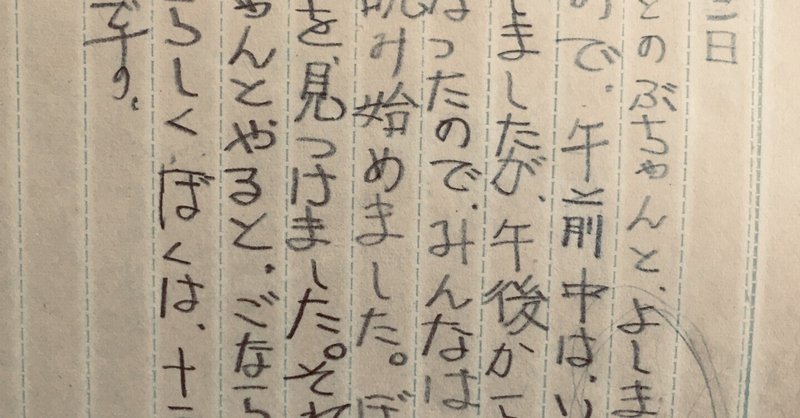 日
とのぶちゃんと、よしま
ので、午前中は、い
しましたが、午後から
なったので、みんなは
読み始めました。ぼ
を、見つけました。それ
ゃんとやると、ごなら
らしく ぼくは、十二
です。